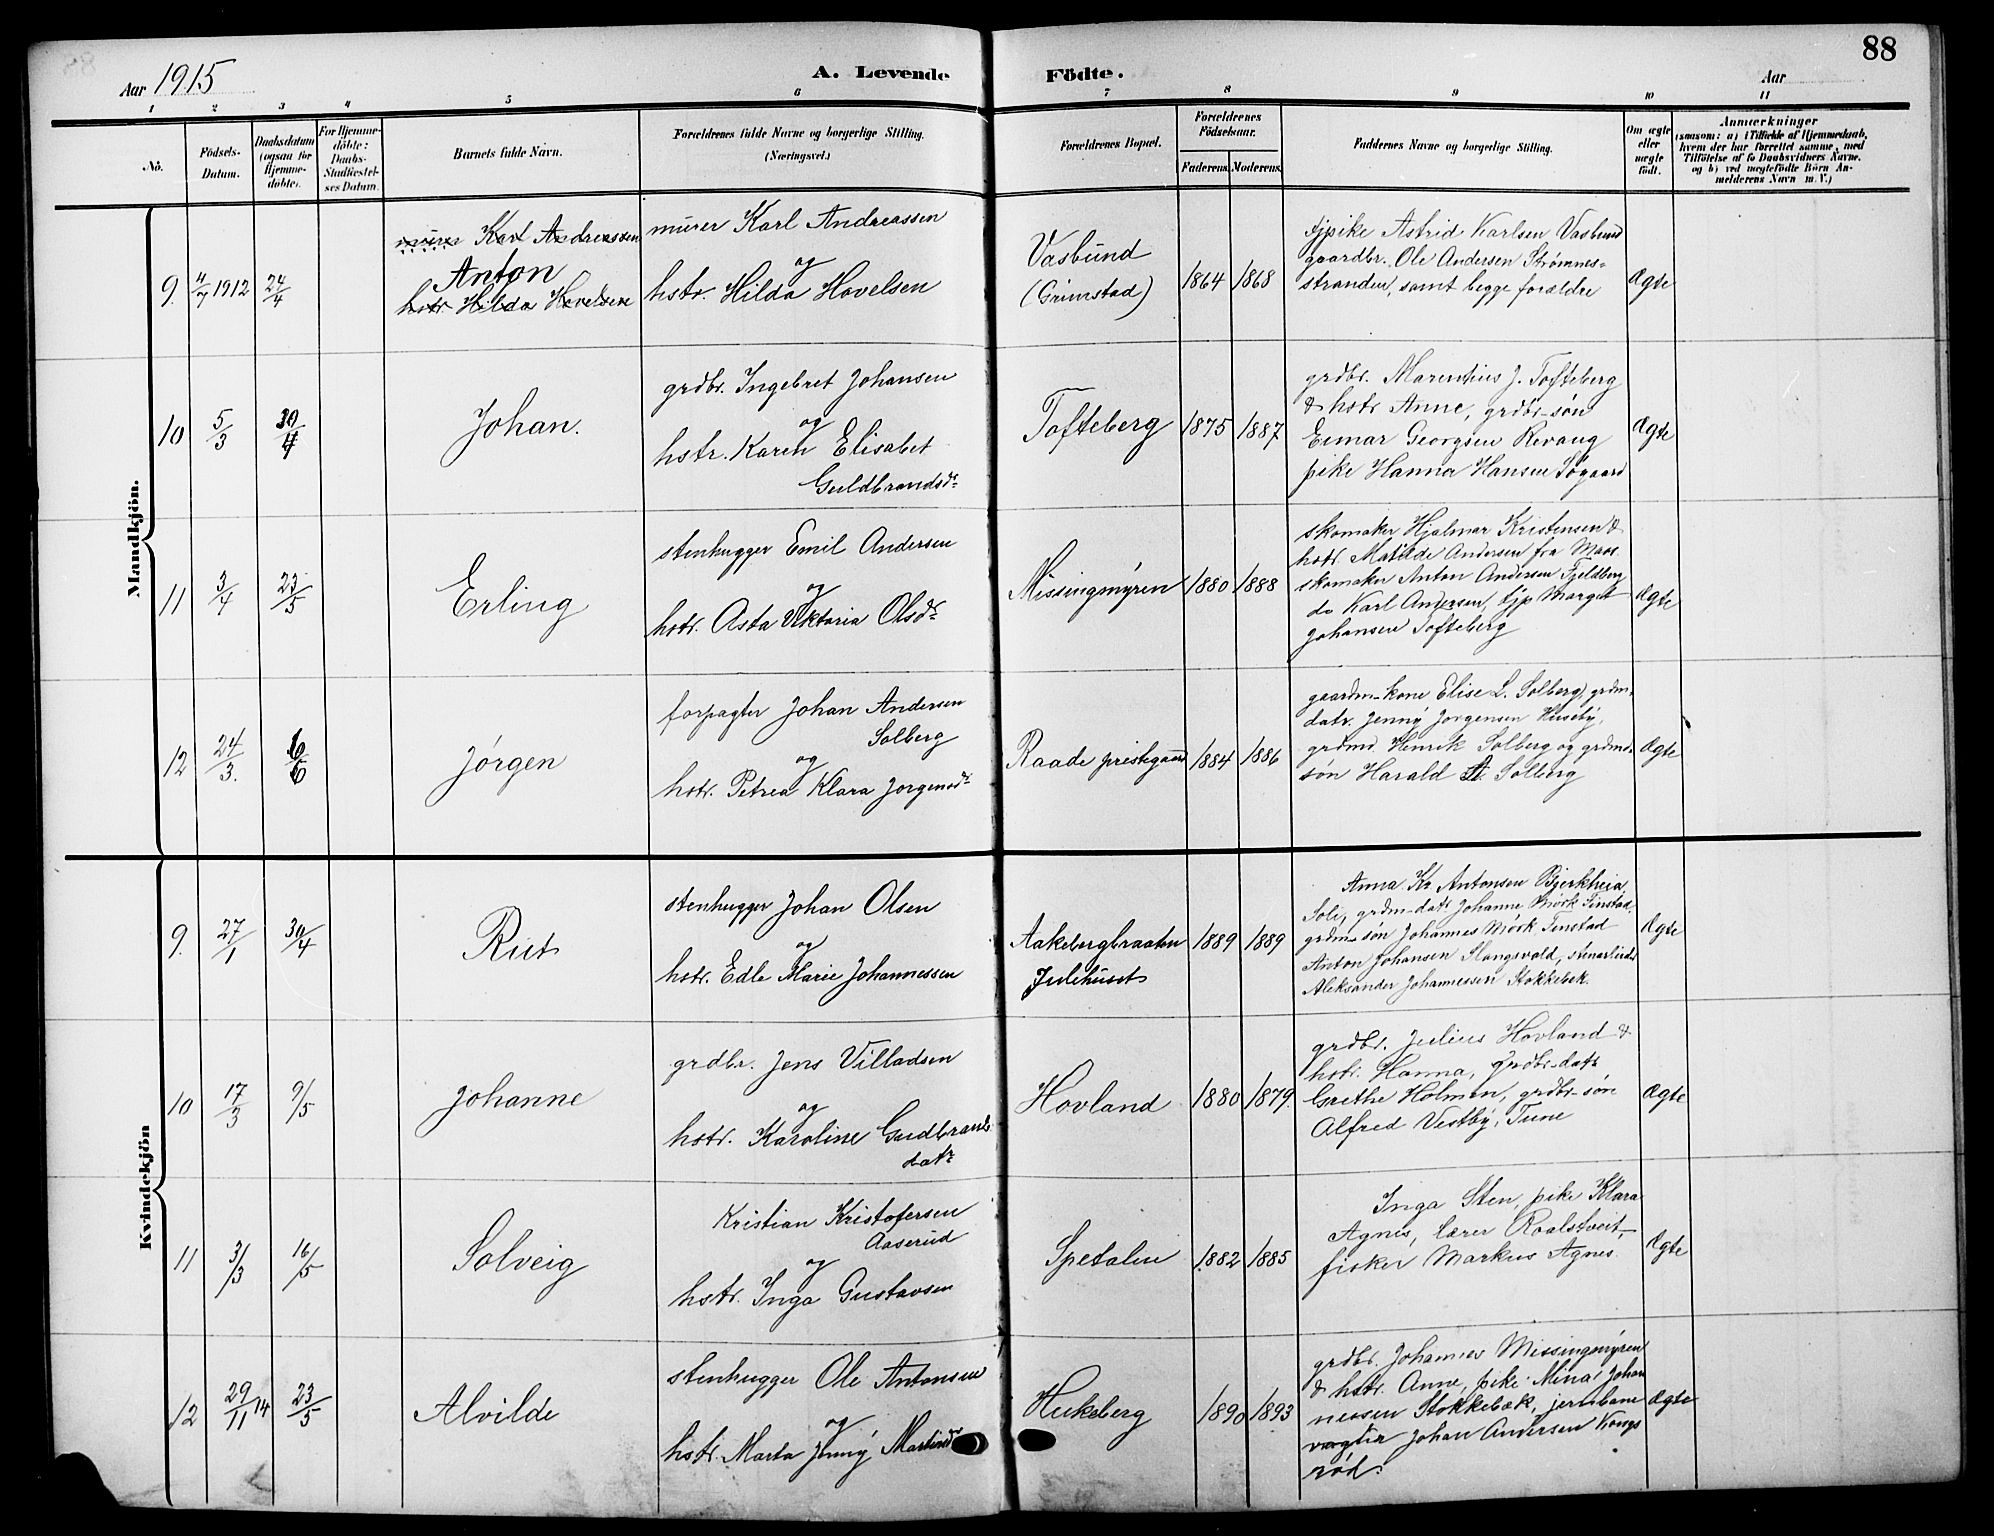 88
Aar 1915
A. Levende Födte.
Aar
1 2 3 4 5 6 7 8 9 10 11
No.
Födsels-Datum.
Daabsdatum (ogsaa for Hjemme-döbte).
For Hjemme-döbte: Daabs-Stadfæstel-ses Datum.
Barnets fulde Navn.
Forældrenes fulde Navne og borgerlige Stilling.
(Næringsvei.)
Forældrenes Bopæl.
Forældrenes Födselsaar.
Faderens. Moderens.
Faddernes Navne og borgerlige Stilling.
Om ægte eller uægte födt.
Anmærkninger
(saasom: a) i Tilfælde af Hjemmedaab,
hvem der har forrettet samme, med
Tilföielse af to Daabsvidners Navne.
og b) ved uægtefödte Börn An-
melderens Navn m. V.)
Mandkjön.
9. 4/7 1912 24/4
murer Karl Andreassen
Anton
hstr. Hilda Hovelsen
murer Karl Andreassen
og
hstr. Hilda Hovelsen
Vasbund
(Grimstad)
1864 1868
tjpike Astrid Karlsen Vasbund
gaardbr. Ole Andersen Strømnes-
stranden, samt begge forældre
Ægte
10 5/3 30/4
Johan.
grdbr. Ingebret Johansen
og
hstr. Karen Elisabet
Guldbrandsdr
Tofteberg
1875 1887
grdbr. Marenthius J. Tofteberg
& hstr Anne, grdbr-søn
Einar Georgsen Revaug
pike Hanna Hansen Søgaard
Ægte
11 3/4 23/5
Erling
stenhugger Emil Andersen
og
hstr. Asta Viktoria Olsdr
Missingmyren
1880 1888
skomaker Hjalmar Kristensen &
hstr. Matilde Andersen fra Moss
skomaker Anton Andersen Fjeldberg
do Karl Andersen, tjp Margit
Johansen Tofteberg
Ægte
12 24/3. 6/6
Jørgen
forpagter Johan Andersen
Solberg
og
hstr. Petrea Klara Jorgensdr
Raade prestegaard
1884 1886
gaardm-kone Elise L. Solberg, grdm.
datr. Jenny Jorgensen Huseby,
grdmd. Henrik Solberg og grdms-
søn Harald A. Solberg
Ægte
Kvindekjön
9. 27/1 30/4
Rut
stenhugger Johan Olsen
og
hstr. Edle Marie Johannessen
Aakebergbraaten
Julehuset
1889 1889
Anna Kr Antonsen Bjerkheia
Soli, grdm-datr Johanne Mørk Tinstad,
grdm-søn Johannes Mørk Tinstad
Anton Johansen Slangsvold, stenarbeider
Aleksander Johannessen Stokkebæk.
Ægte
10 17/3 9/5
Johanne
grdbr. Jens Villadsen
og
hstr. Karoline Gudbrands
datr
Hovland
1880 1879.
grdbr. Julius Hovland &
hstr. Hanna, grdbr-datr
Grethe Holmen, grdbr-søn
Alfred Vestby, Tune
Ægte
11 3/3 16/5
Solveig
Kristian Kristofersen
Aaserud
og
hstr. Inga Gustavsen
Spetalen
1882 1885
Inga Sten, pike Klara
Agnes, lærer Roalstveit,
fisker Markus Agnes.
Ægte
12 29/11 14 23/5
Alvilde
stenhugger Ole Antonsen
og
hstr. Marta Jenny Martinsdr
Hukeberg
1890 1893
grdbr. Johannes Missingmyren
& hstr. Anne, pike Mina Johan
nessen Stokkebæk, jernbane
vogter Johan Andersen Kongs
rød.
Ægte